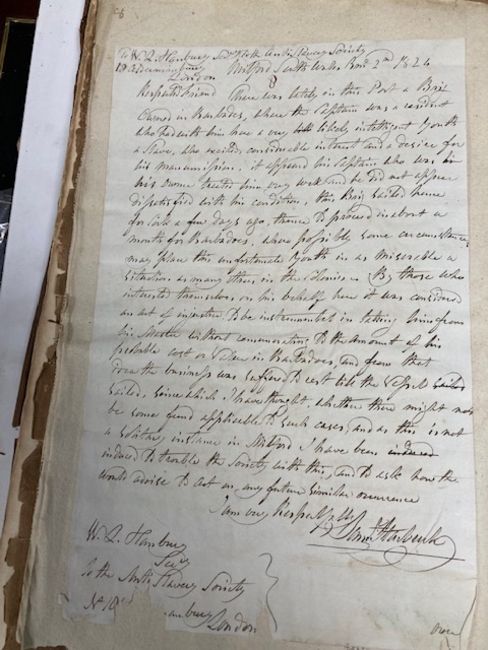 To W. Q. Hanbury Secy to the Anti Slavery Society
London
Milford South Wales 2nd 1824
Respected Friend There was lately in this Port a Brig
Owned in Barbadoes, where the Captain was a resident
who had with him here a very likely, intelligent Youth
a Slave, who excited considerable interest and a desire for
his manumission. it appeared his Captain who was
his owner treated him very well and he did not appear
dissatisfied with his condition, this Brig sailed hence
for a few days ago, thence to proceed in about a
month for Barbadoes, where possibly some circumstances
may place this unfortunate Youth in as miserable a
situation as many others in the Colonies. By those who
interested themselves on his behalf here it was considered
an act of injustice to be instrumental in taking him from
his Master without remunerating to the amount of his
probable cost or value in Barbadoes, and from that
idea the business was suffered to rest till the Vessel sailed
sailed, since which I have thought whether there might not
be some fund applicable to such cases, and as this is not
a solitary instance in Milford I have been induced
induced to trouble the Society with this, and to ask how they
would advise to act on any future similar occurrence
I am very Respectfully
Starbuck
W. Q. Hanbury
Secy
to the Anti Slavery Society
No 18
anbury
London
over